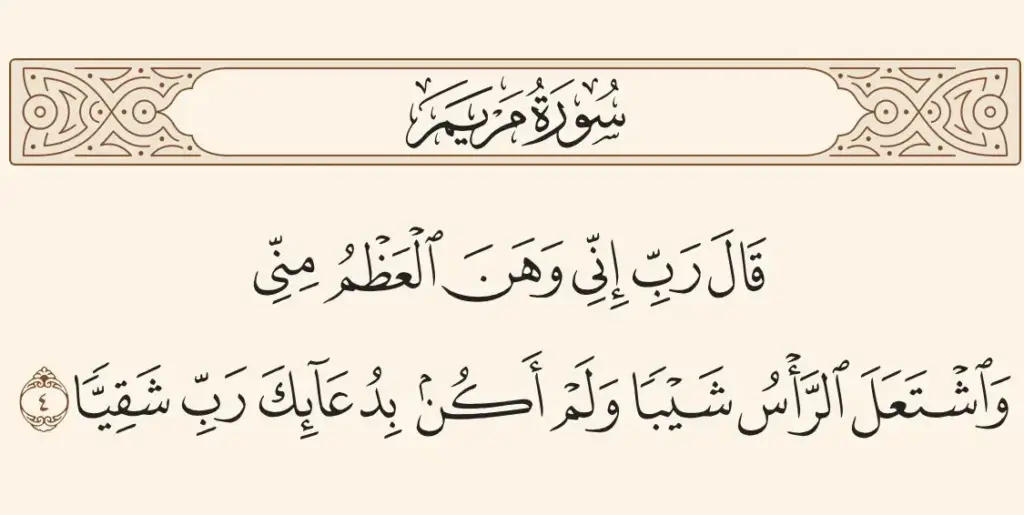 سُورَةُ مَرْيَمَ
قَالَ رَبِّ إِنِّي وَهَنَ ٱلْعَظْمُ مِنِّي
وَٱشْتَعَلَ ٱلرَّأْسُ شَيْبًا وَلَمْ أَكُنۢ بِدُعَآئِكَ رَبِّ شَقِيًّا ٤